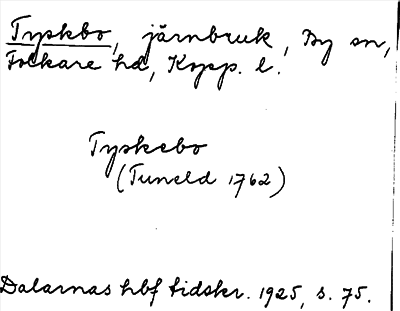 Tyskbo, järnbruk, By sn,
Folkare hd, Kopp. l.
Tyskebo
(Tuneld 1762)
Dalarnas hbf tidskr. 1925, s. 75.